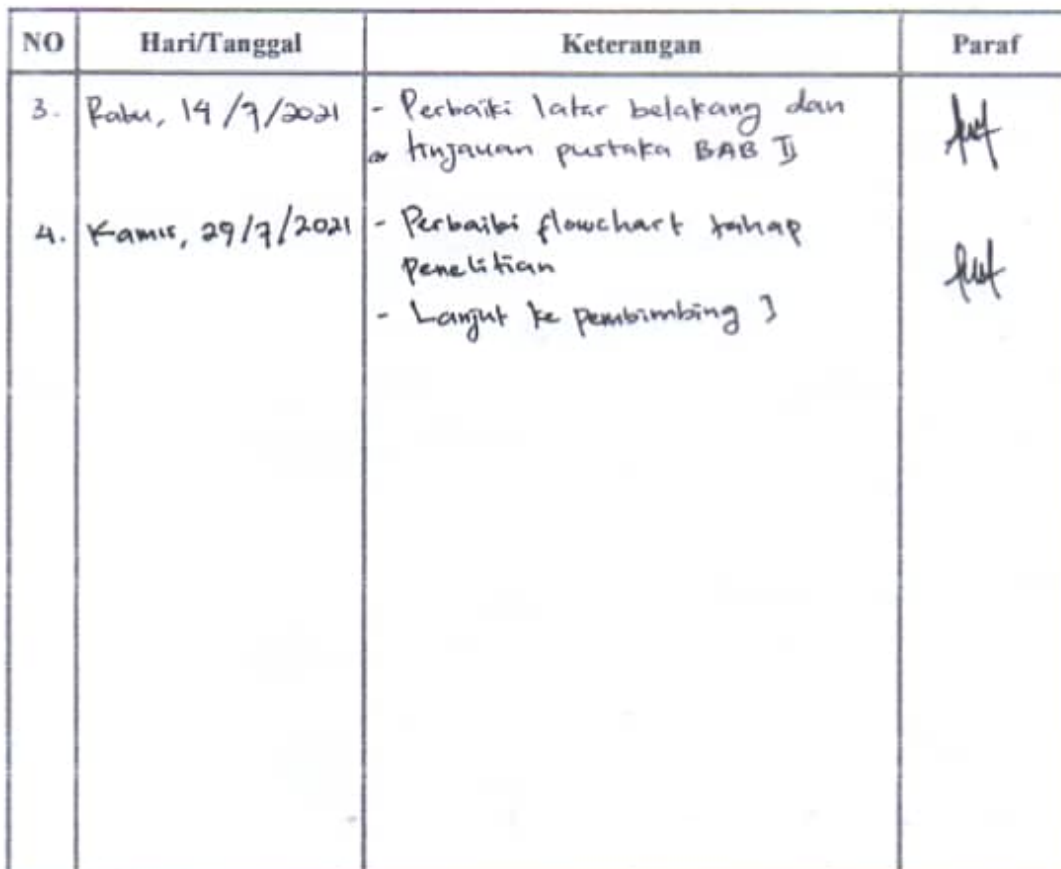 NO Hari/Tanggal Keterangan Paraf
3. Rabu, 14/7/2021 - Perbaiki latar belakang dan
tinjauan pustaka BAB II
4. Kamis, 29/7/2021 - Perbaiki flowchart tahap
penelitian
- Lanjut ke pembimbing I